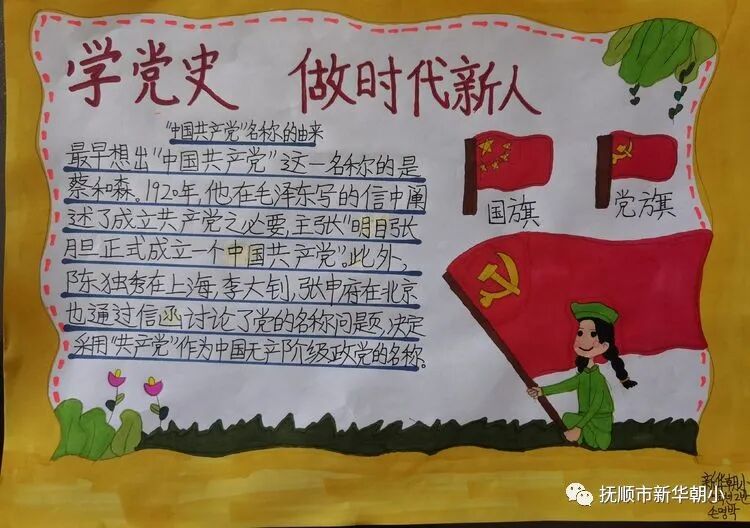 学党史 做时代新人
"中国共产党"名称的由来
最早想出"中国共产党"这一名称的是
蔡和森。1920年,他在毛泽东写的信中阐
述了成立共产党之必要,主张"明目张
胆正式成立一个中国共产党"。此外,
陈独秀在上海,李大钊,张申府在北京
也通过信函讨论了党的名称问题,决定
采用"共产党"作为中国无产阶级政党的名称。
国旗
党旗
新华朝小
抚顺市新华朝小